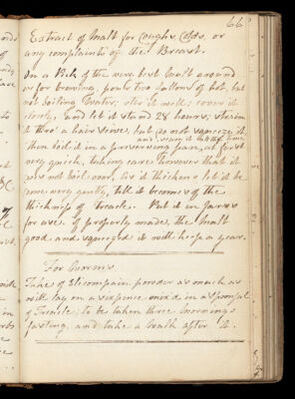 66
Extract of Malt for Coughs, Colds, or
any complaints of the Breast.
On a Peck of the very best Malt ground
as for brewing, pour two gallons of hot, but
not boiling Water; stir it well; cover it
closely, and let it stand 28 hours; strain
it thro' a hair sieve but do not squeeze it
Then boil it in a preserving pan, at first
very quick, taking care however that it
does not boil over, as it thickens let it be
come very gently, till it becomes of the
thickness of treacle. Put it in Jarrs
for use. if properly made, the Malt
good and squeezed it will keep a year.
For Worms
Take of Elecampain powder as much as
will lay on a sixpence mix'd in a Spoonful
of Treacle to be taken three mornings
fasting, and take a after it.